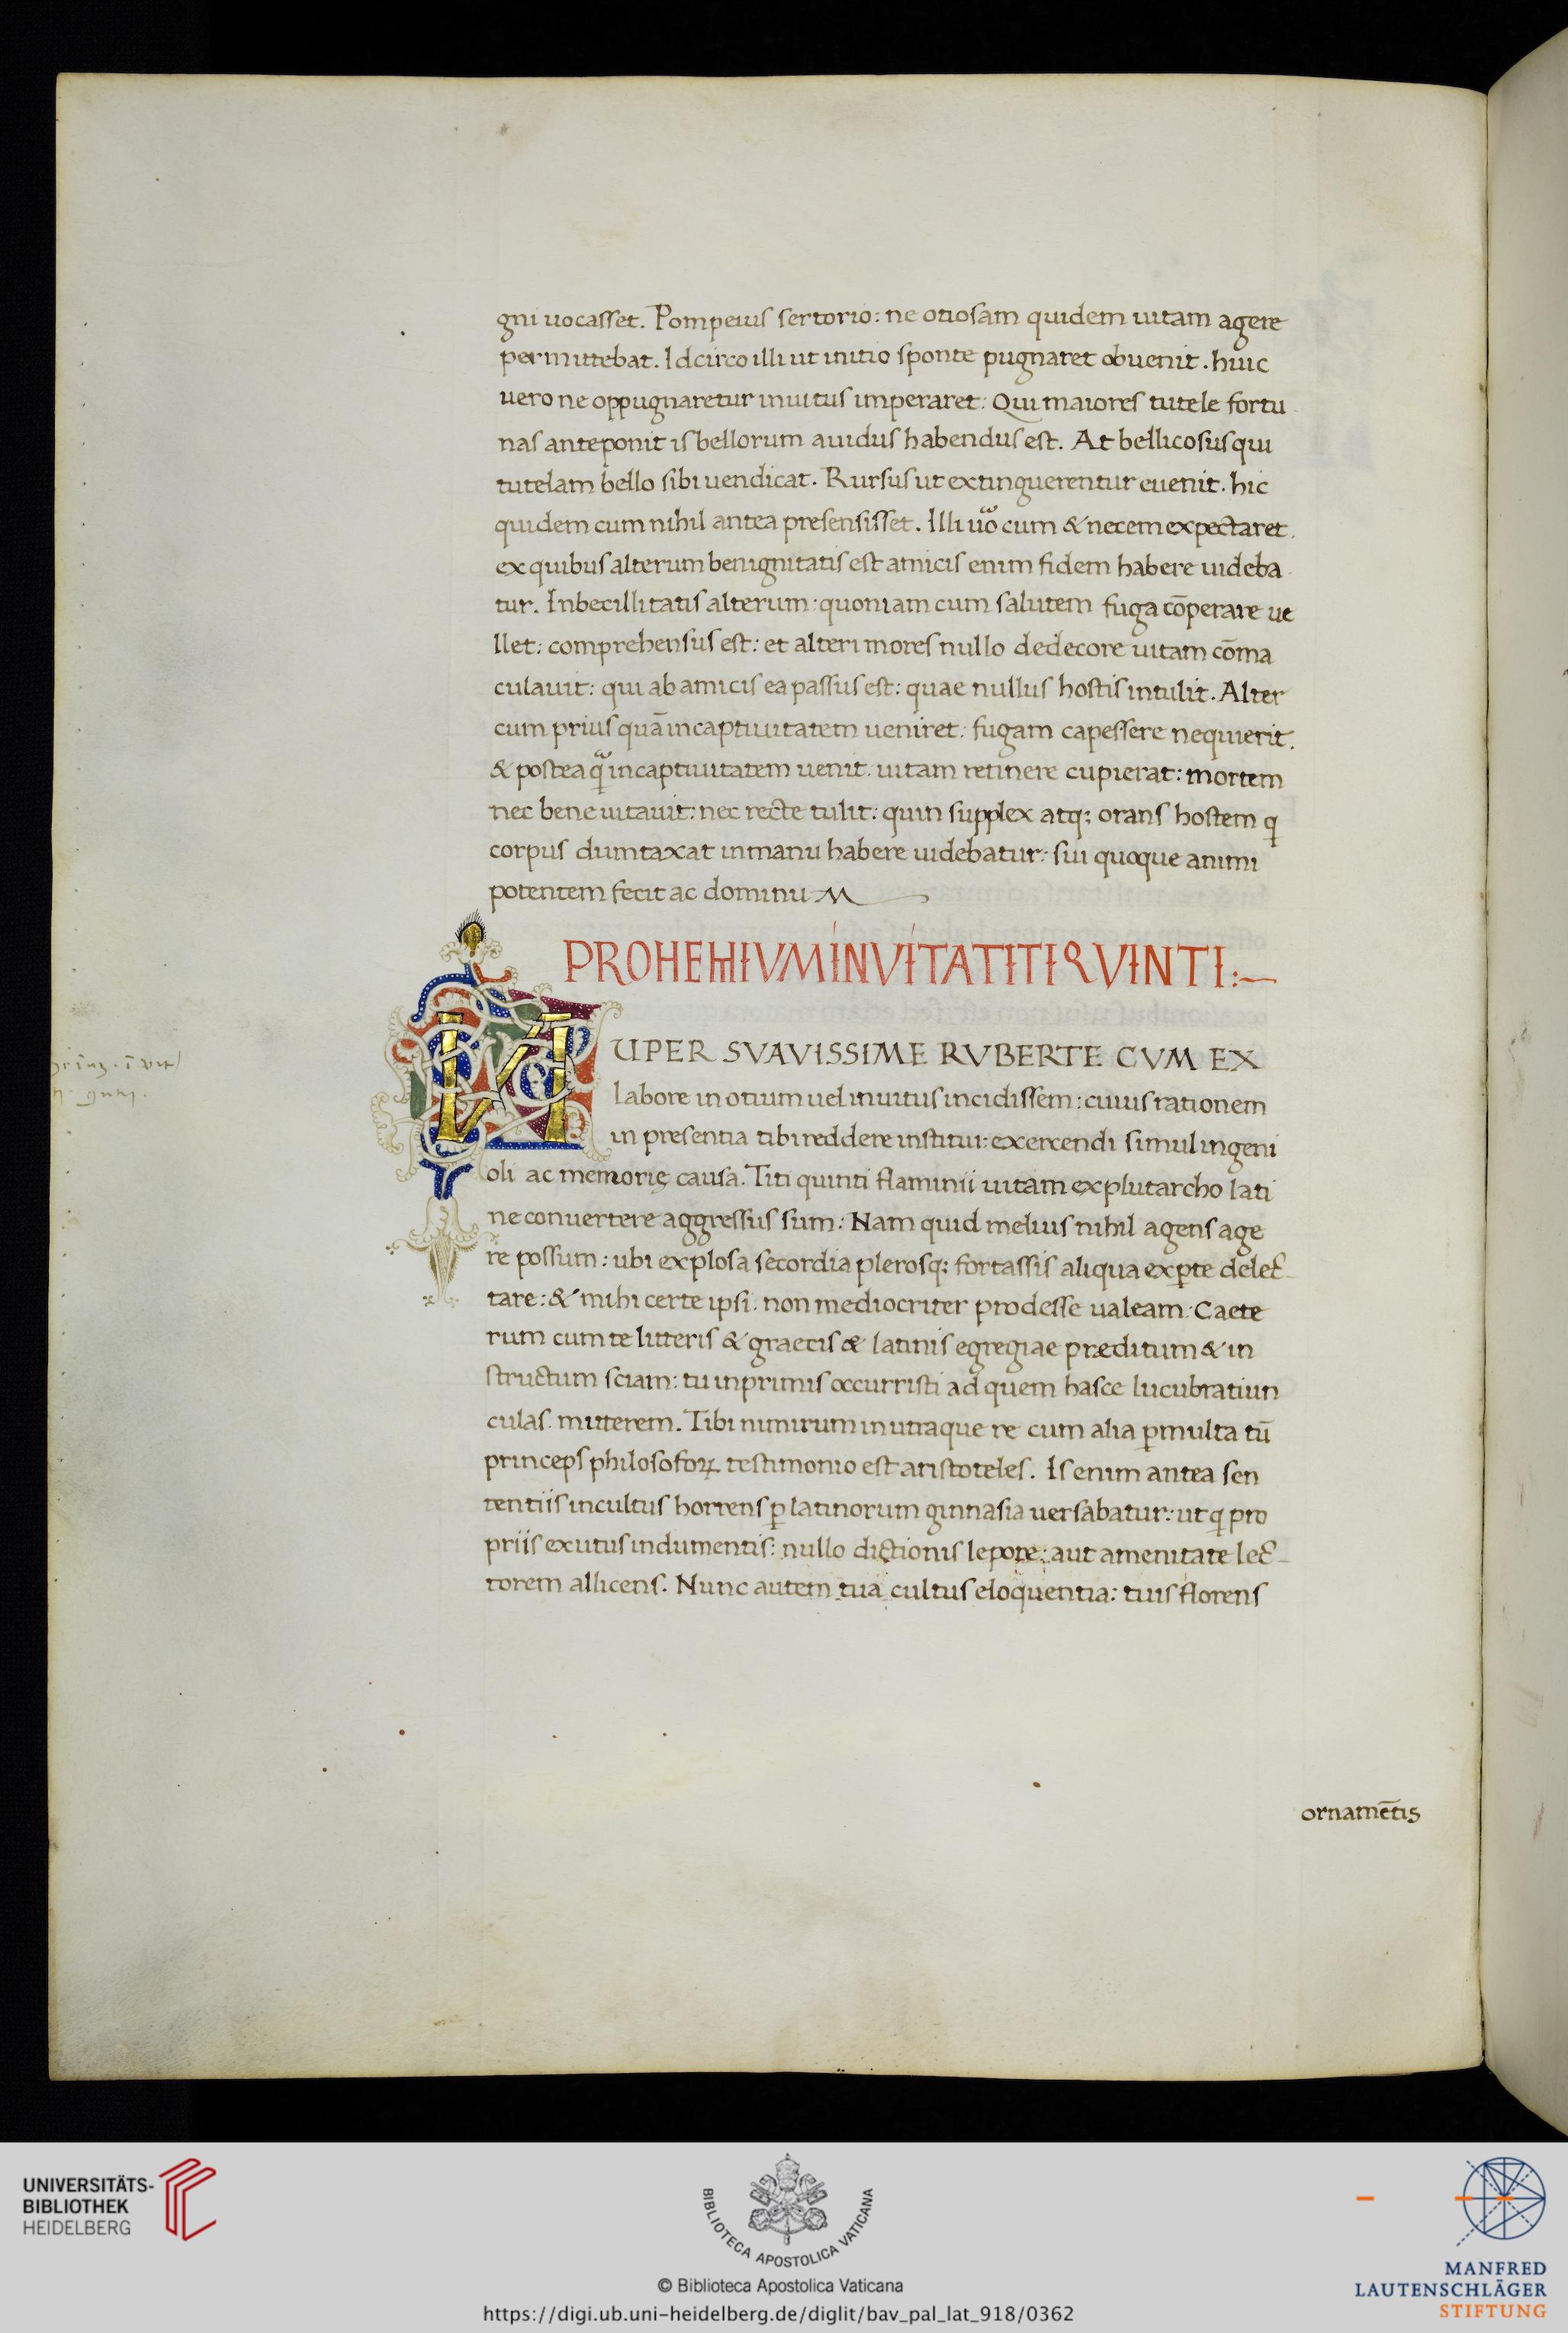 gni uocasset. Pompeius sertorio: ne otiosam quidem uitam agere
permittebat. Idcirco illi ut initio sponte pugnaret obuenit. huic
uero ne oppugnaretur inuitus imperaret: Qui maiores tutele fortu
nas anteponit is bellorum auidus habendus est. At bellicosus qui
tutelam bello sibi uendicat. Rursus ut extinguerentur euenit. hic
quidem cum nihil antea presensisset. Illi uo cum & necem expectaret.
ex quibus alterum benignitatis est amicis enim fidem habere uideba
tur. Inbecillitatis alterum: quoniam cum salutem fuga cōperare ue
llet: comprehensus est: et alteri mores nullo dedecore uitam cōma
culauit: qui ab amicis ea passus est: quae nullus hostis intulit. Alter
cum prius quā in captiuitatem ueniret: fugam capessere nequierit.
& postea q̃ in captiuitatem uenit. uitam retinere cupierat: mortem
nec bene uitauit: nec recte tulit: quin supplex atq; orans hostem q
corpus dumtaxat in manu habere uidebatur: sui quoque animi
potentem fecit ac dominuM
PROHEHIVM IN VITA TITI QVINTI:~
NUPER SVAVISSIME RVBERTE CVM EX
labore in otium uel inuitus incidissem: cuius rationem
in presentia tibi reddere institui: exercendi simul ingeni
oli ac memorię causa. Titi quinti flaminii uitam ex plutarcho lati
ne conuertere aggressus sum: Nam quid melius nihil agens age
re possum: ubi explosa secordia plerosq; fortassis aliqua ex ꝑte delec
tare: & mihi certe ipsi. non mediocriter prodesse ualeam. Caete
rum cum te litteris & graecis & latinis egregiae præditum & in
structum sciam: tu inprimis occurristi ad quem hasce lucubratiun
culas. mitterem. Tibi nimirum in utraque re cum alia ꝑmulta tū
princeps philosofoꝝ testimonio est aristoteles. Is enim antea sen
tentiis incultus horrens ꝑ latinorum ginnasia uersabatur: ut q pro
priis exutus indumentis: nullo dictionis lepore: aut amenitate lec
torem allicens. Nunc autem tua cultus eloquentia: tuis florens
ornamētis
UNIVERSITÄTS-
BIBLIOTHEK
HEIDELBERG
BIBLIOTECA APOSTOLICA VATICANA
© Biblioteca Apostolica Vaticana
https://digi.ub.uni-heidelberg.de/diglit/bav_pal_lat_918/0362
MANFRED
LAUTENSCHLÄGER
STIFTUNG